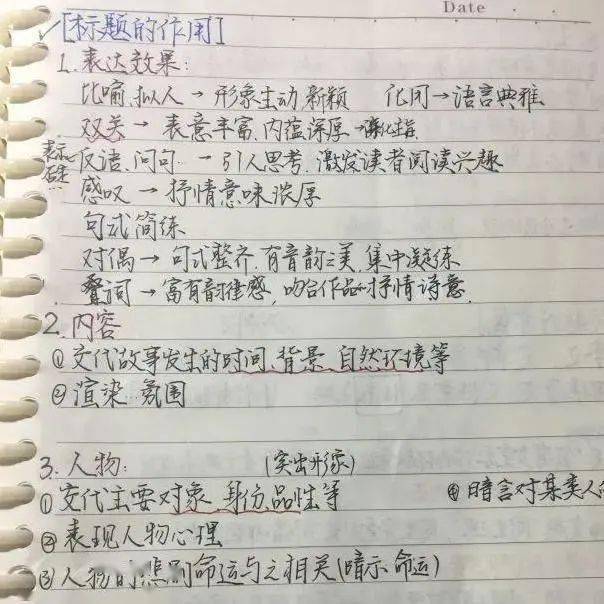 Date
✓[标题的作用]
1.表达效果:
比喻.拟人→形象生动.新颖 化用→语言典雅
双关→表意丰富.内蕴深厚→
反语.问句→引人思考.激发读者阅读兴趣
感叹→抒情意味浓厚
句式简练
对偶→句式整齐.有音韵之美.集中凝练
叠词→富有韵律感,吻合作品的抒情诗意.
2.内容
①交代故事发生的时间.背景.自然环境等
②渲染氛围
3.人物: (突出形象)
①交代主要对象.身份.品性等 ④暗言对某类人
②表现人物心理
③人物的悲剧命运与之相关(暗示命运)